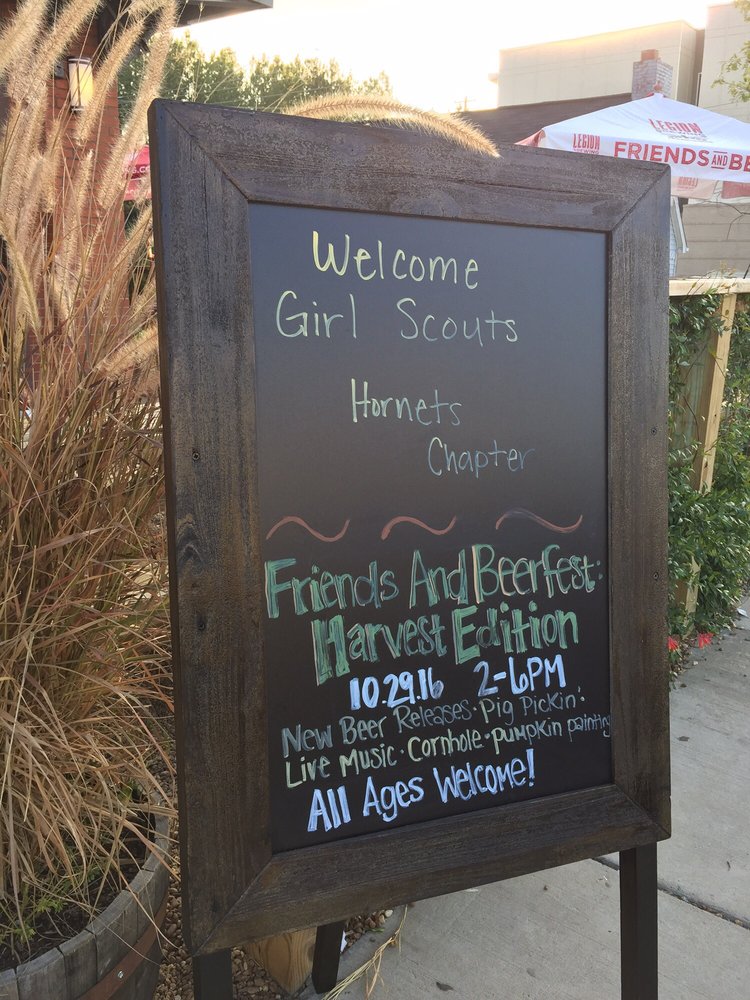 Welcome
Girl Scouts
Hornets
Chapter
Friends And Beerfest:
Harvest Edition
10.29.16 2-6PM
New Beer Releases · Pig Pickin'
Live Music · Cornhole · pumpkin painting
All Ages Welcome!
LEGION
LEGION
BREWING
FRIENDS AND BE